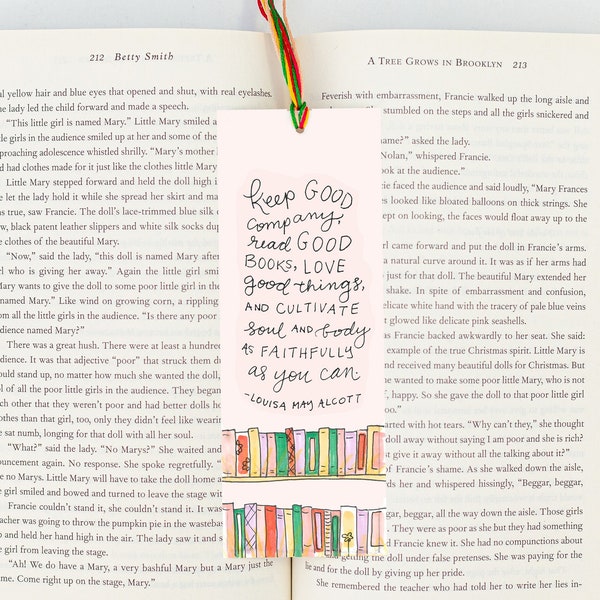 212 Betty Smith
al yellow hair and blue eyes that opened and shut, with real eyelashes.
he lady led the child forward and made a speech.
"This little girl is named Mary." Little Mary smiled a
girls in the audience smiled up at her and some of the
proaching adolescence whistled shrilly. "Mary's mother
had clothes made for it just like the clothes little Mary
Little Mary stepped forward and held the doll high i
e let the lady hold it while she spread her skirt and ma
as true, saw Francie. The doll's lace-trimmed blue silk
w, black patent leather slippers and white silk socks dup
clothes of the beautiful Mary.
"Now," said the lady, "this doll is named Mary after
who is giving her away." Again the little girl smil
Mary wants to give the doll to some poor little girl in the
named Mary." Like wind on growing corn, a rippling
om all the little girls in the audience. "Is there any poor
dience named Mary?"
There was a great hush. There were at least a hundred
dience. It was that adjective "poor" that struck them d
uld stand up, no matter how much she wanted the doll,
of all the poor little girls in the audience. They began
other that they weren't poor and had better dolls ho
othes than that girl, too, only they didn't feel like wearing
sat numb, longing for that doll with all her soul.
"What?" said the lady. "No Marys?" She waited and
ouncement again. No response. She spoke regretfully.
no Marys. Little Mary will have to take the doll home a
girl smiled and bowed and turned to leave the stage wit
Francie couldn't stand it, she couldn't stand it. It was
acher was going to throw the pumpkin pie in the wasteba
and held her hand high in the air. The lady saw it and s
from leaving the stage.
"Ah! We do have a Mary, a very bashful Mary but a Mary just the
me. Come right up on the stage, Mary."
keep GOOD
company,
read GOOD
BOOKS, LOVE
good things,
AND CULTIVATE
soul AND body
AS FAITHFULLY
as you can
-LOUISA MAY ALCOTT
A TREE GROWS IN BROOKLYN 213
Feverish with embarrassment, Francie walked up the long aisle and
stumbled on the steps and all the girls snickered and
name?" asked the lady.
Nolan," whispered Francie.
look at the audience."
faced the audience and said loudly, "Mary Frances
looked like bloated balloons on thick strings. She
kept on looking, the faces would float away up to the
girl came forward and put the doll in Francie's arms.
a natural curve around it. It was as if her arms had
just for that doll. The beautiful Mary extended her
shake. In spite of embarrassment and confusion,
delicate white hand with the tracery of pale blue veins
glowed like delicate pink seashells.
as Francie backed awkwardly to her seat. She said:
example of the true Christmas spirit. Little Mary is
received many beautiful dolls for Christmas. But
wanted to make some poor little Mary, who is not
happy. So she gave the doll to that poor little
too."
smarted with hot tears. "Why can't they," she thought
doll away without saying I am poor and she is rich?
give it away without all the talking about it?"
of Francie's shame. As she walked down the aisle,
her and whispered hissingly, "Beggar, beggar,
beggar, beggar, all the way down the aisle. Those girls
They were as poor as she but they had something
Francie knew it. She had no compunctions about
getting the doll under false pretenses. She was paying for the
and the doll by giving up her pride.
She remembered the teacher who had told her to write her lies in-